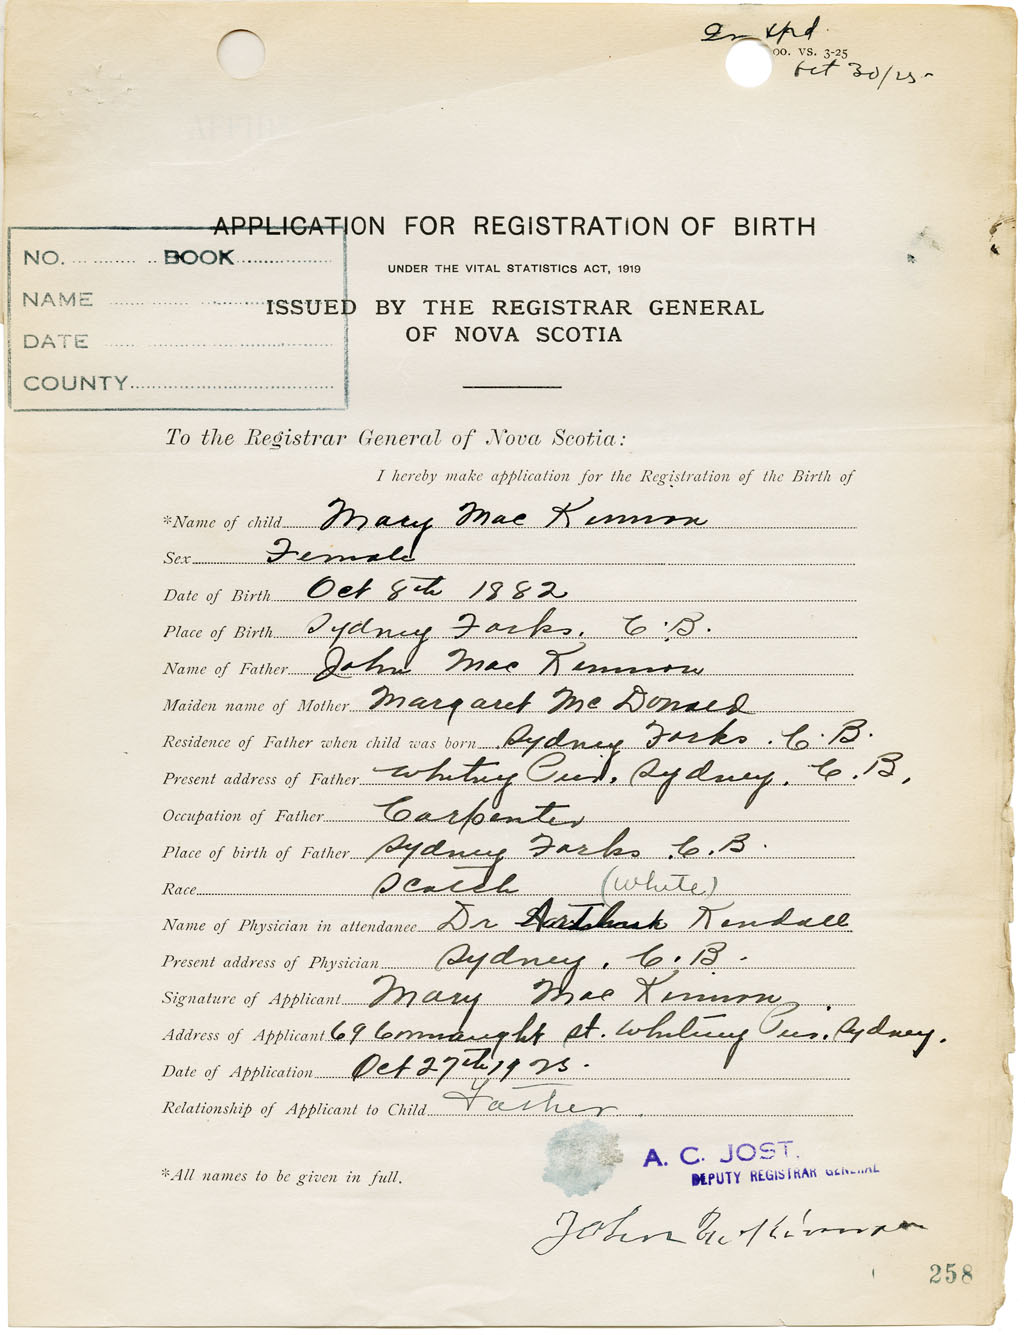 00. VS. 3-25
Oct 30/25-
APPLICATION FOR REGISTRATION OF BIRTH
UNDER THE VITAL STATISTICS ACT, 1919
ISSUED BY THE REGISTRAR GENERAL
OF NOVA SCOTIA
NO. BOOK
NAME
DATE
COUNTY
To the Registrar General of Nova Scotia:
I hereby make application for the Registration of the Birth of
*Name of child Mary Mac Kinnon
Sex Female
Date of Birth Oct 8th 1882
Place of Birth Sydney Forks. C.B.
Name of Father John Mac Kinnon
Maiden name of Mother Margaret Mc Donald
Residence of Father when child was born Sydney Forks. C.B.
Present address of Father Whitney Pier, Sydney, C.B.
Occupation of Father Carpenter
Place of birth of Father Sydney Forks C.B.
Race Scotch (White)
Name of Physician in attendance Dr Kendall
Present address of Physician Sydney, C.B.
Signature of Applicant Mary Mac Kinnon
Address of Applicant 69 Connaught St. Whitney Pier, Sydney.
Date of Application Oct 27th 1925.
Relationship of Applicant to Child Father.
*All names to be given in full.
A. C. JOST.
DEPUTY REGISTRAR GENERAL
John McKinnon
258